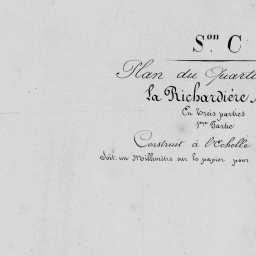 Son C
Plan du Quarti
la Richardière
En trois parties
1ère Partie
Construit à l'Echelle
Soit un Millimètre sur le papier pour